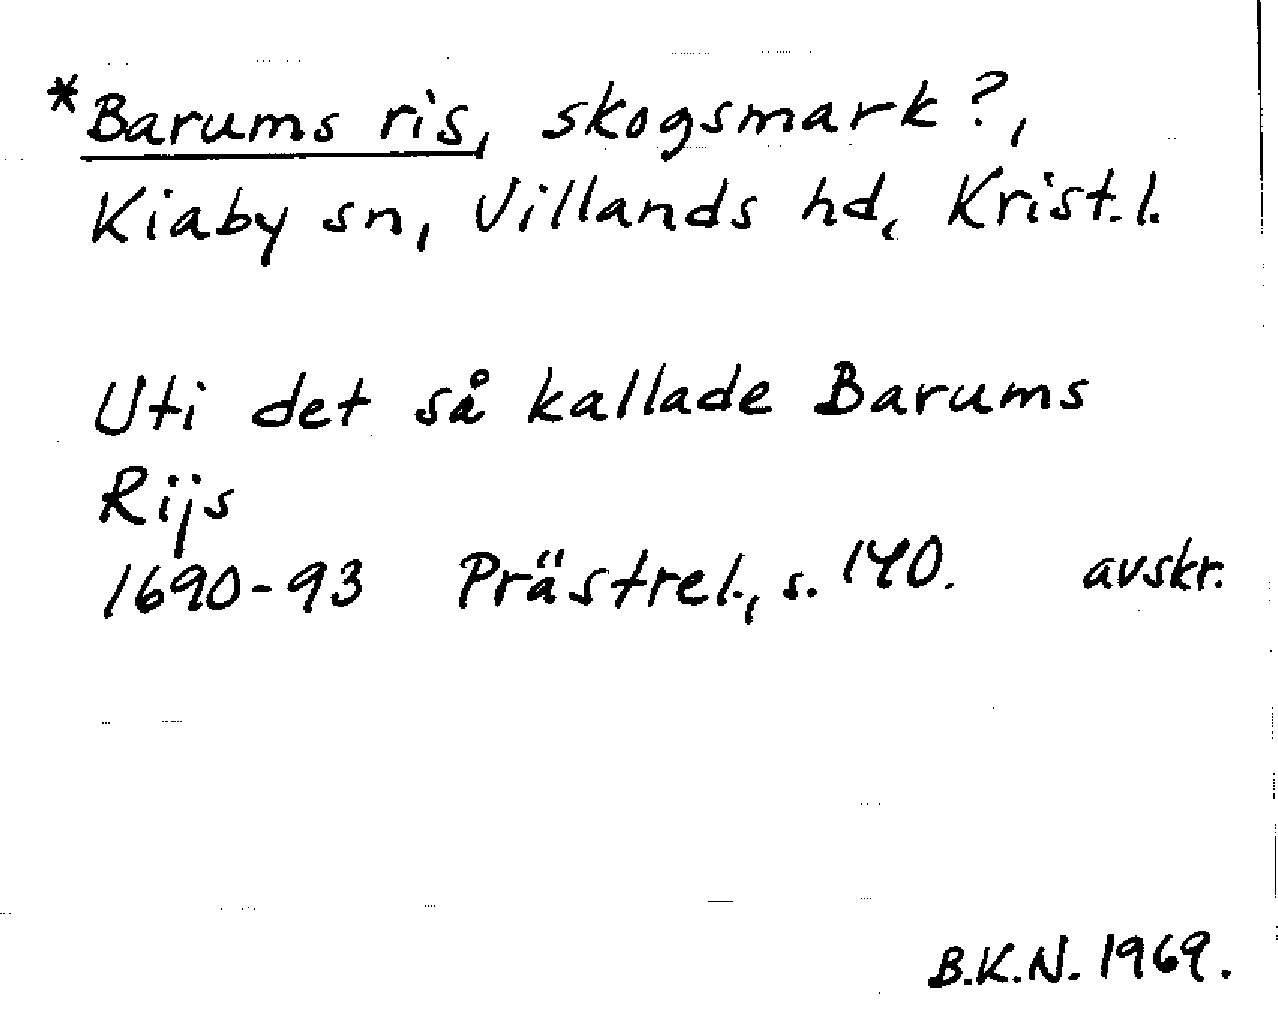 *Barums ris, skogsmark?,
Kiaby sn, Villands hd, Krist. l.
Uti det så kallade Barums
Rijs
1690-93 Prästrel., s. 140. avskr.
B.K.N. 1969.